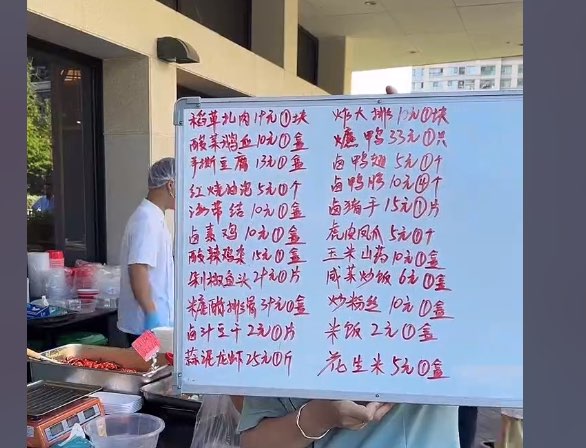 稻草扎肉19元①块
酸菜鸡血10元①盒
手撕豆腐13元①盒
红烧油泡5元①个
海带结10元①盒
卤素鸡10元①盒
酸辣鸡杂15元①盒
剁椒鱼头29元①片
米醋排骨39元①盒
卤汁豆干2元①片
蒜泥龙虾25元①斤
炸大排12元①块
爊鸭33元①只
卤鸭翅5元①个
卤鸭胗10元④个
卤猪手15元①片
虎皮凤爪5元①个
玉米山药10元①盒
咸菜炒饭6元①盒
炒粉丝10元①盒
米饭2元①盒
花生米5元①盒